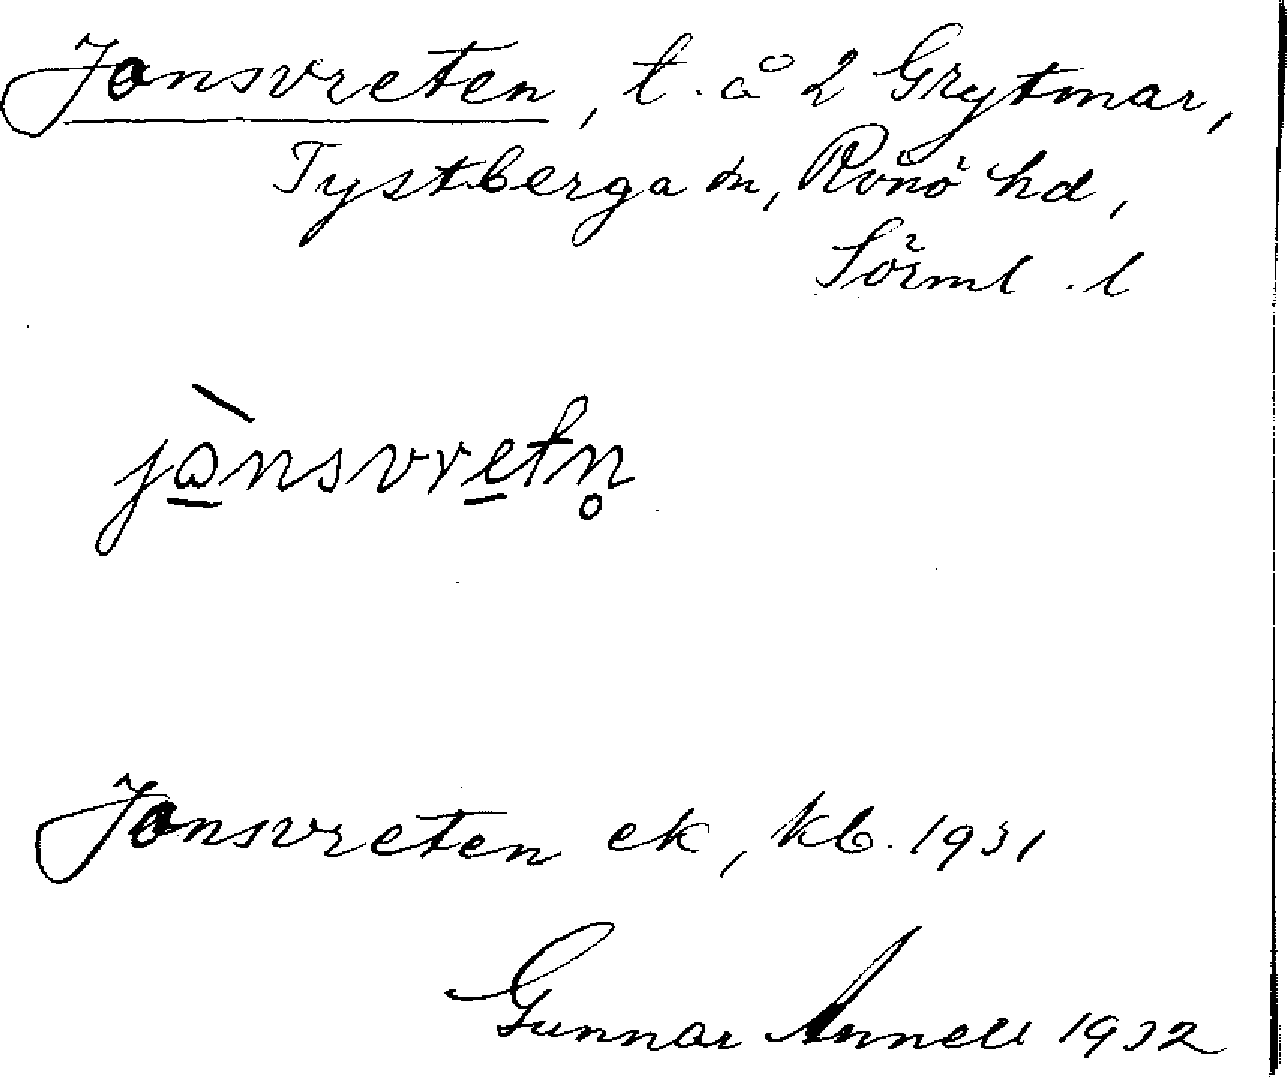 Jonsvreten, t. å 2 Grytmar,
Tystberga sn, Rönö hd,
Sörml. l
jònsvretn̥
Jonsvreten ek, kb. 1931
Gunnar Annell 1932